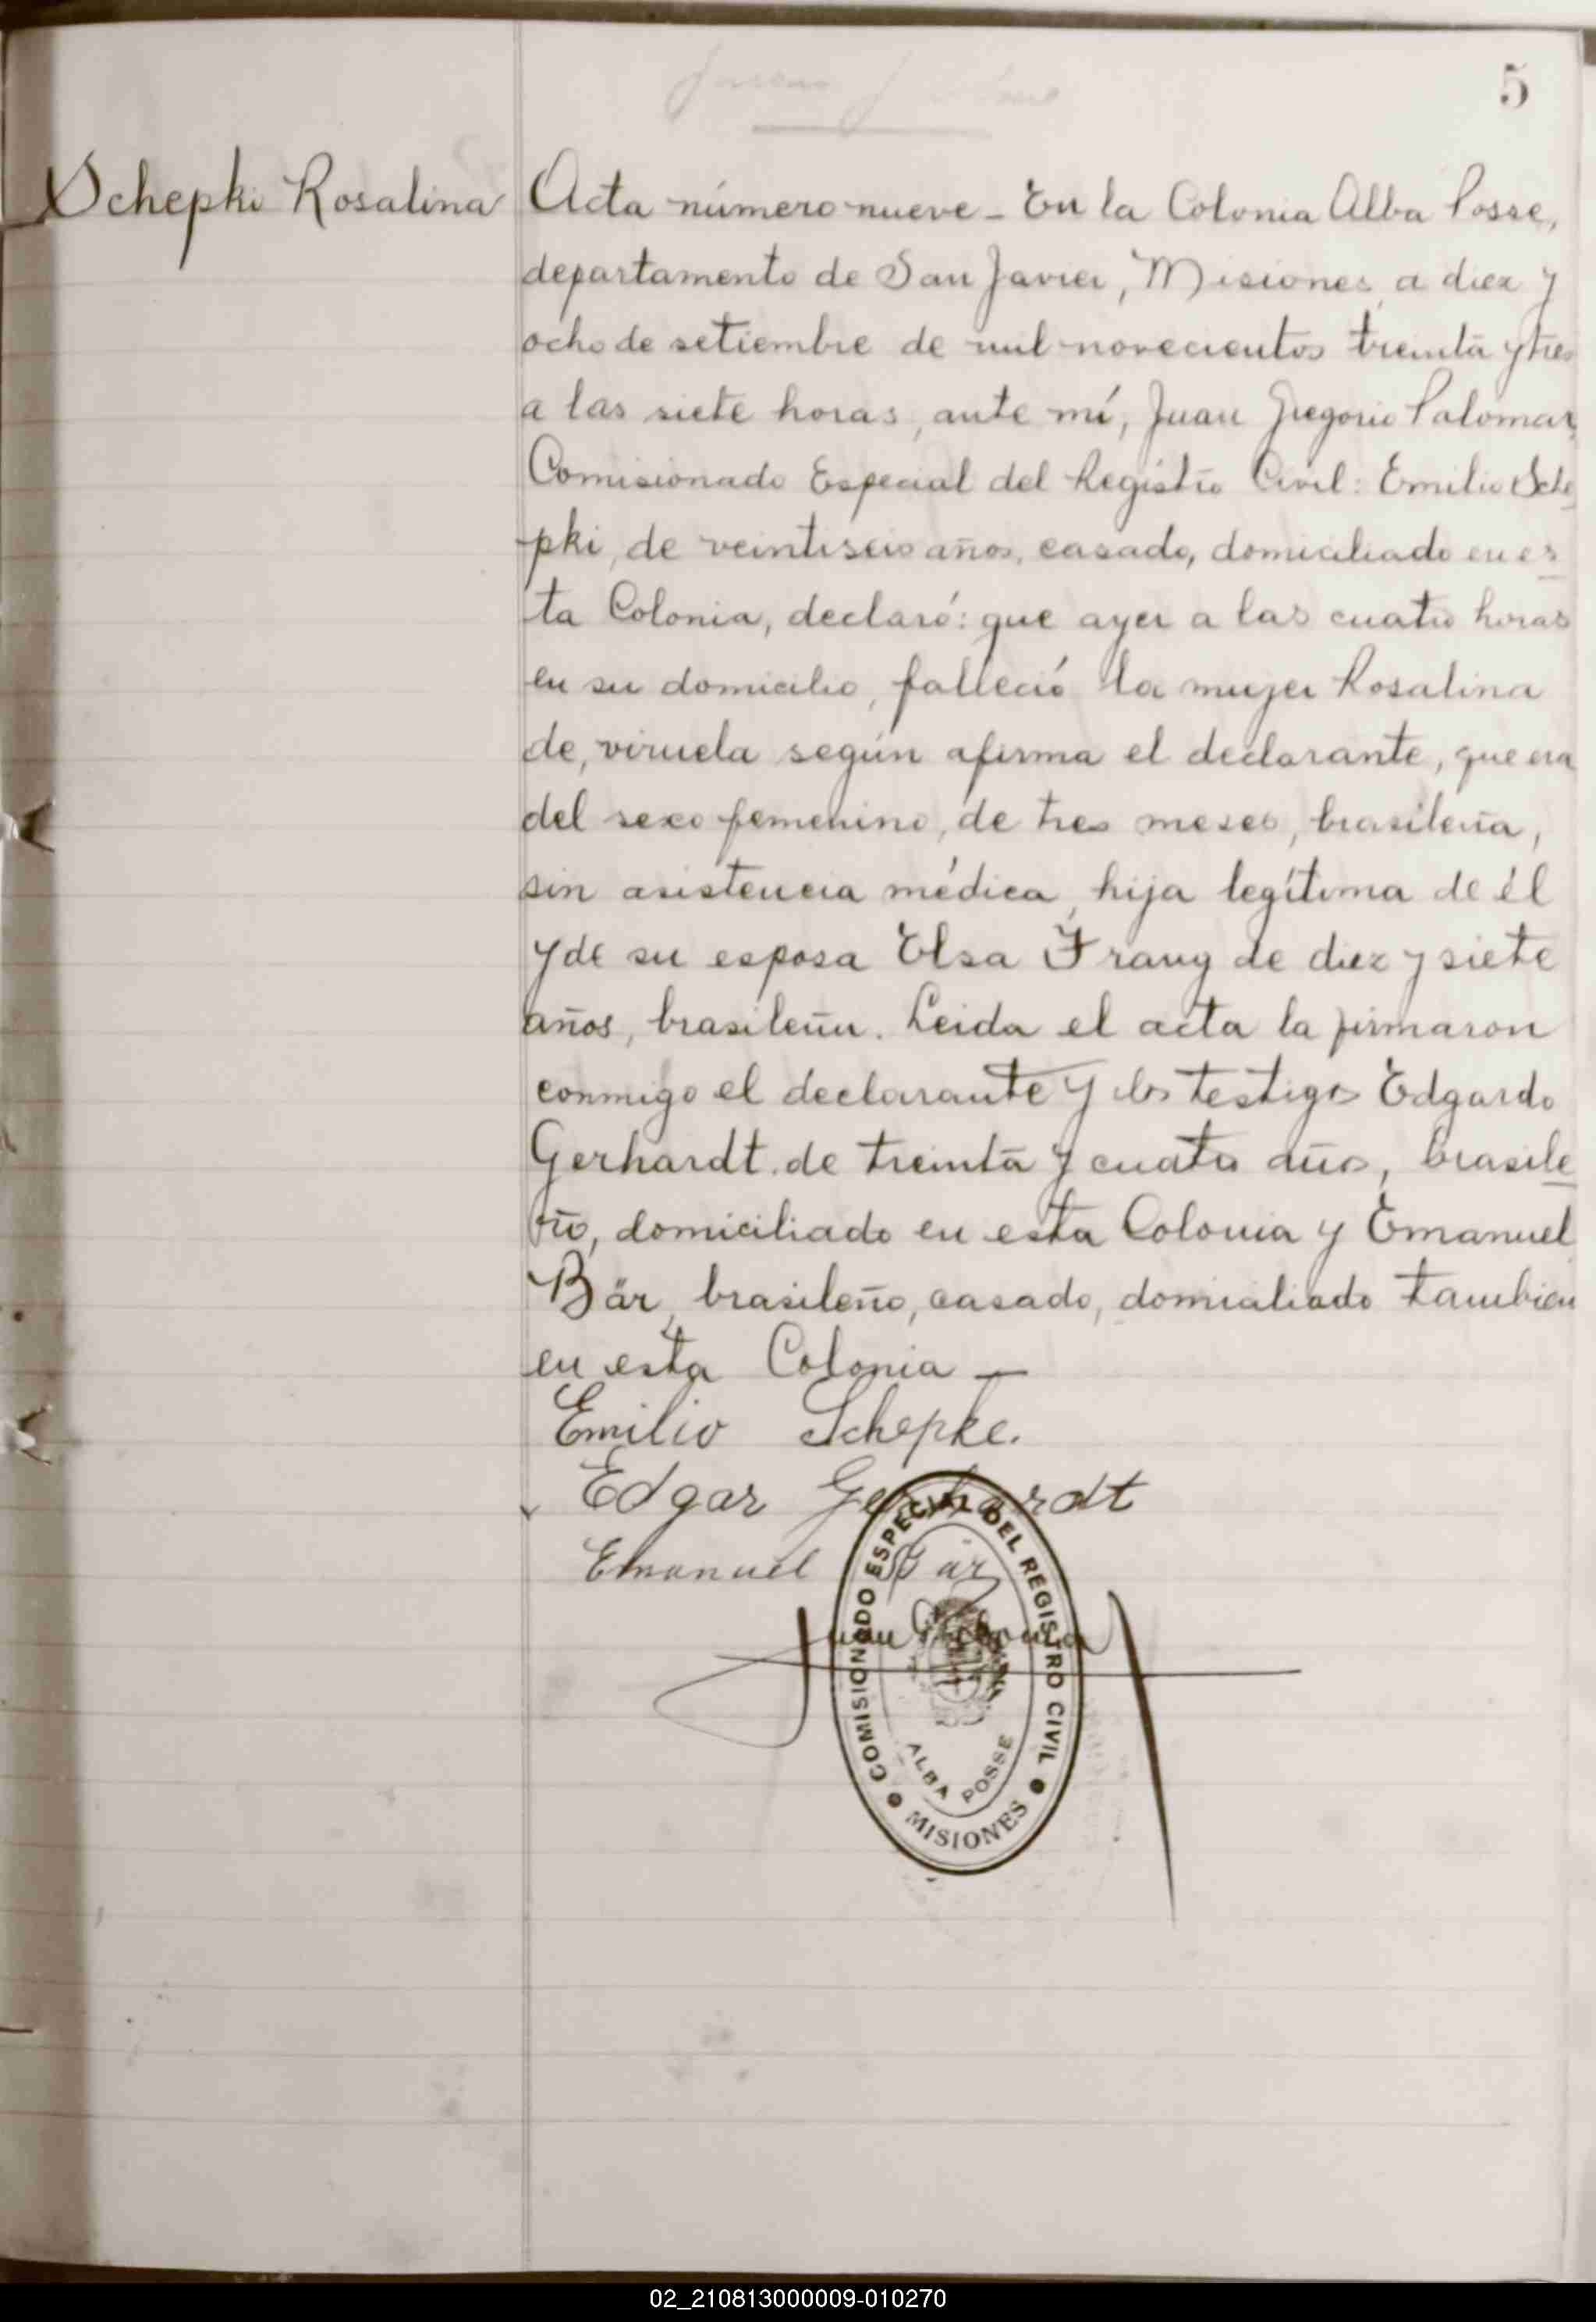 5
Schepki Rosalina
Acta número nueve - En la Colonia Alba Posse,
departamento de San Javier, Misiones, a diez y
ocho de setiembre de mil novecientos treinta y tres
a las siete horas, ante mí, Juan Gregorio Palomar,
Comisionado Especial del Registro Civil: Emilio Sche
pki, de veintiseis años, casado, domiciliado en es
ta Colonia, declaró: que ayer a las cuatro horas
en su domicilio, falleció la mujer Rosalina
de, viruela según afirma el declarante, que era
del sexo femenino, de tres meses, brasileña,
sin asistencia médica, hija legítima de él
y de su esposa Elsa de diez y siete
años, brasileña. Leida el acta la firmaron
conmigo el declarante y los testigos Edgardo
Gerhardt de treinta y cuatro años, brasile
ño, domiciliado en esta Colonia y Emanuel
Bär, brasileño, casado, domiciliado tambien
en esta Colonia —
Emilio Schepke.
Edgar Gerhardt
Emanuel Bär
Juan
COMISIONADO ESPECIAL DEL REGISTRO CIVIL
ALBA POSSE
MISIONES
02_210813000009-010270